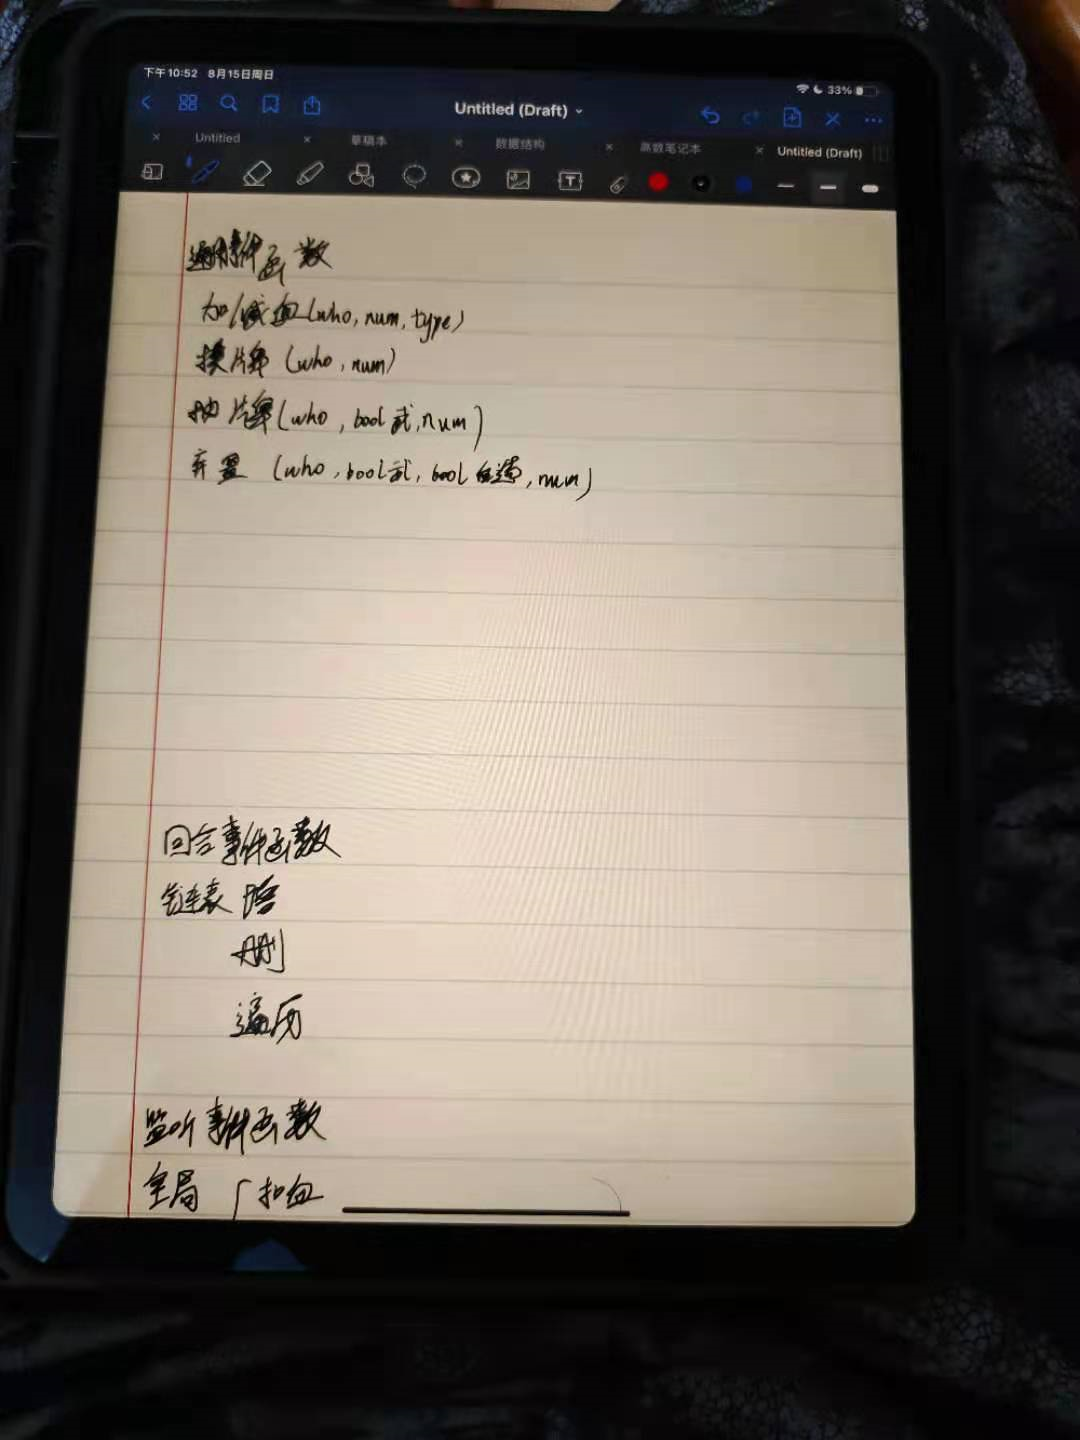 下午10:52 8月15日周日
33%
Untitled (Draft)
Untitled
草稿本
数据结构
高数笔记本
Untitled (Draft)
通用事件函数
加/减血(who, num, type)
换牌 (who, num)
抽牌(who, bool 武, num)
弃置 (who, bool武, bool 自选, num)
回合事件函数
链表 增
删
遍历
监听事件函数
全局 扣血